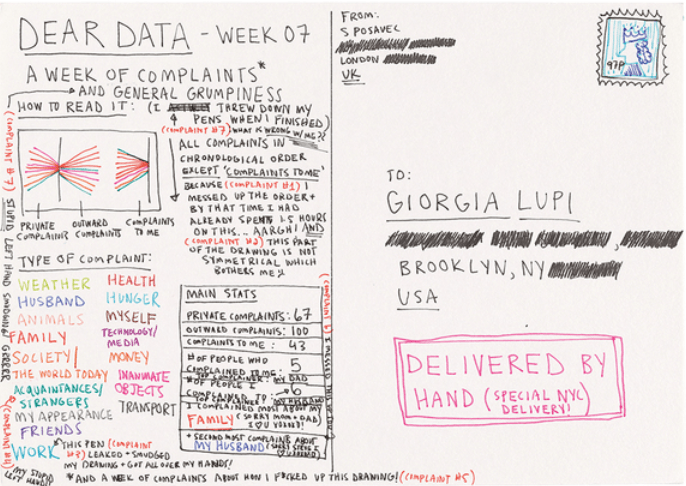 DEAR DATA - WEEK 07
A WEEK OF COMPLAINTS*
AND GENERAL GRUMPINESS
HOW TO READ IT: (I THREW DOWN MY
PENS WHEN I FINISHED)
(COMPLAINT #7) WHAT IS WRONG W/ME??
ALL COMPLAINTS IN
CHRONOLOGICAL ORDER
EXCEPT 'COMPLAINTS TO ME'
BECAUSE (COMPLAINT #1) I
MESSED UP THE ORDER +
BY THAT TIME I HAD
ALREADY SPENT 1.5 HOURS
ON THIS... AARGH! AND
(COMPLAINT #2) THIS PART
OF THE DRAWING IS NOT
SYMMETRICAL WHICH
BOTHERS ME
PRIVATE
COMPLAINTS
OUTWARD
COMPLAINTS
COMPLAINTS
TO ME
(COMPLAINT #7) STUPID LEFT HAND SMUDGING! GRRRRR
TYPE OF COMPLAINT:
WEATHER
HUSBAND
ANIMALS
FAMILY
SOCIETY/
THE WORLD TODAY
ACQUAINTANCES/
STRANGERS
MY APPEARANCE
FRIENDS
WORK
HEALTH
HUNGER
MYSELF
TECHNOLOGY/
MEDIA
MONEY
INANIMATE
OBJECTS
TRANSPORT
MAIN STATS
PRIVATE COMPLAINTS: 67
OUTWARD COMPLAINTS: 100
COMPLAINTS TO ME: 43
# OF PEOPLE WHO
COMPLAINED TO ME: 5
TOP COMPLAINER: MY DAD
# OF PEOPLE I
COMPLAINED TO: 6
MY HUSBAND
I COMPLAINED MOST ABOUT MY
FAMILY (SORRY MOM + DAD)
+ SECOND MOST COMPLAINTS ABOUT
MY HUSBAND
*THIS PEN (COMPLAINT
#3) LEAKED + SMUDGED
MY DRAWING + GOT ALL OVER MY HANDS!
MY STUPID
LEFT HAND!
*AND A WEEK OF COMPLAINTS ABOUT HOW I F*CKED UP THIS DRAWING! (COMPLAINT #5)
FROM:
S POSAVEC
LONDON
UK
97P
TO:
GIORGIA LUPI
BROOKLYN, NY
USA
DELIVERED BY
HAND (SPECIAL NYC
DELIVERY!)